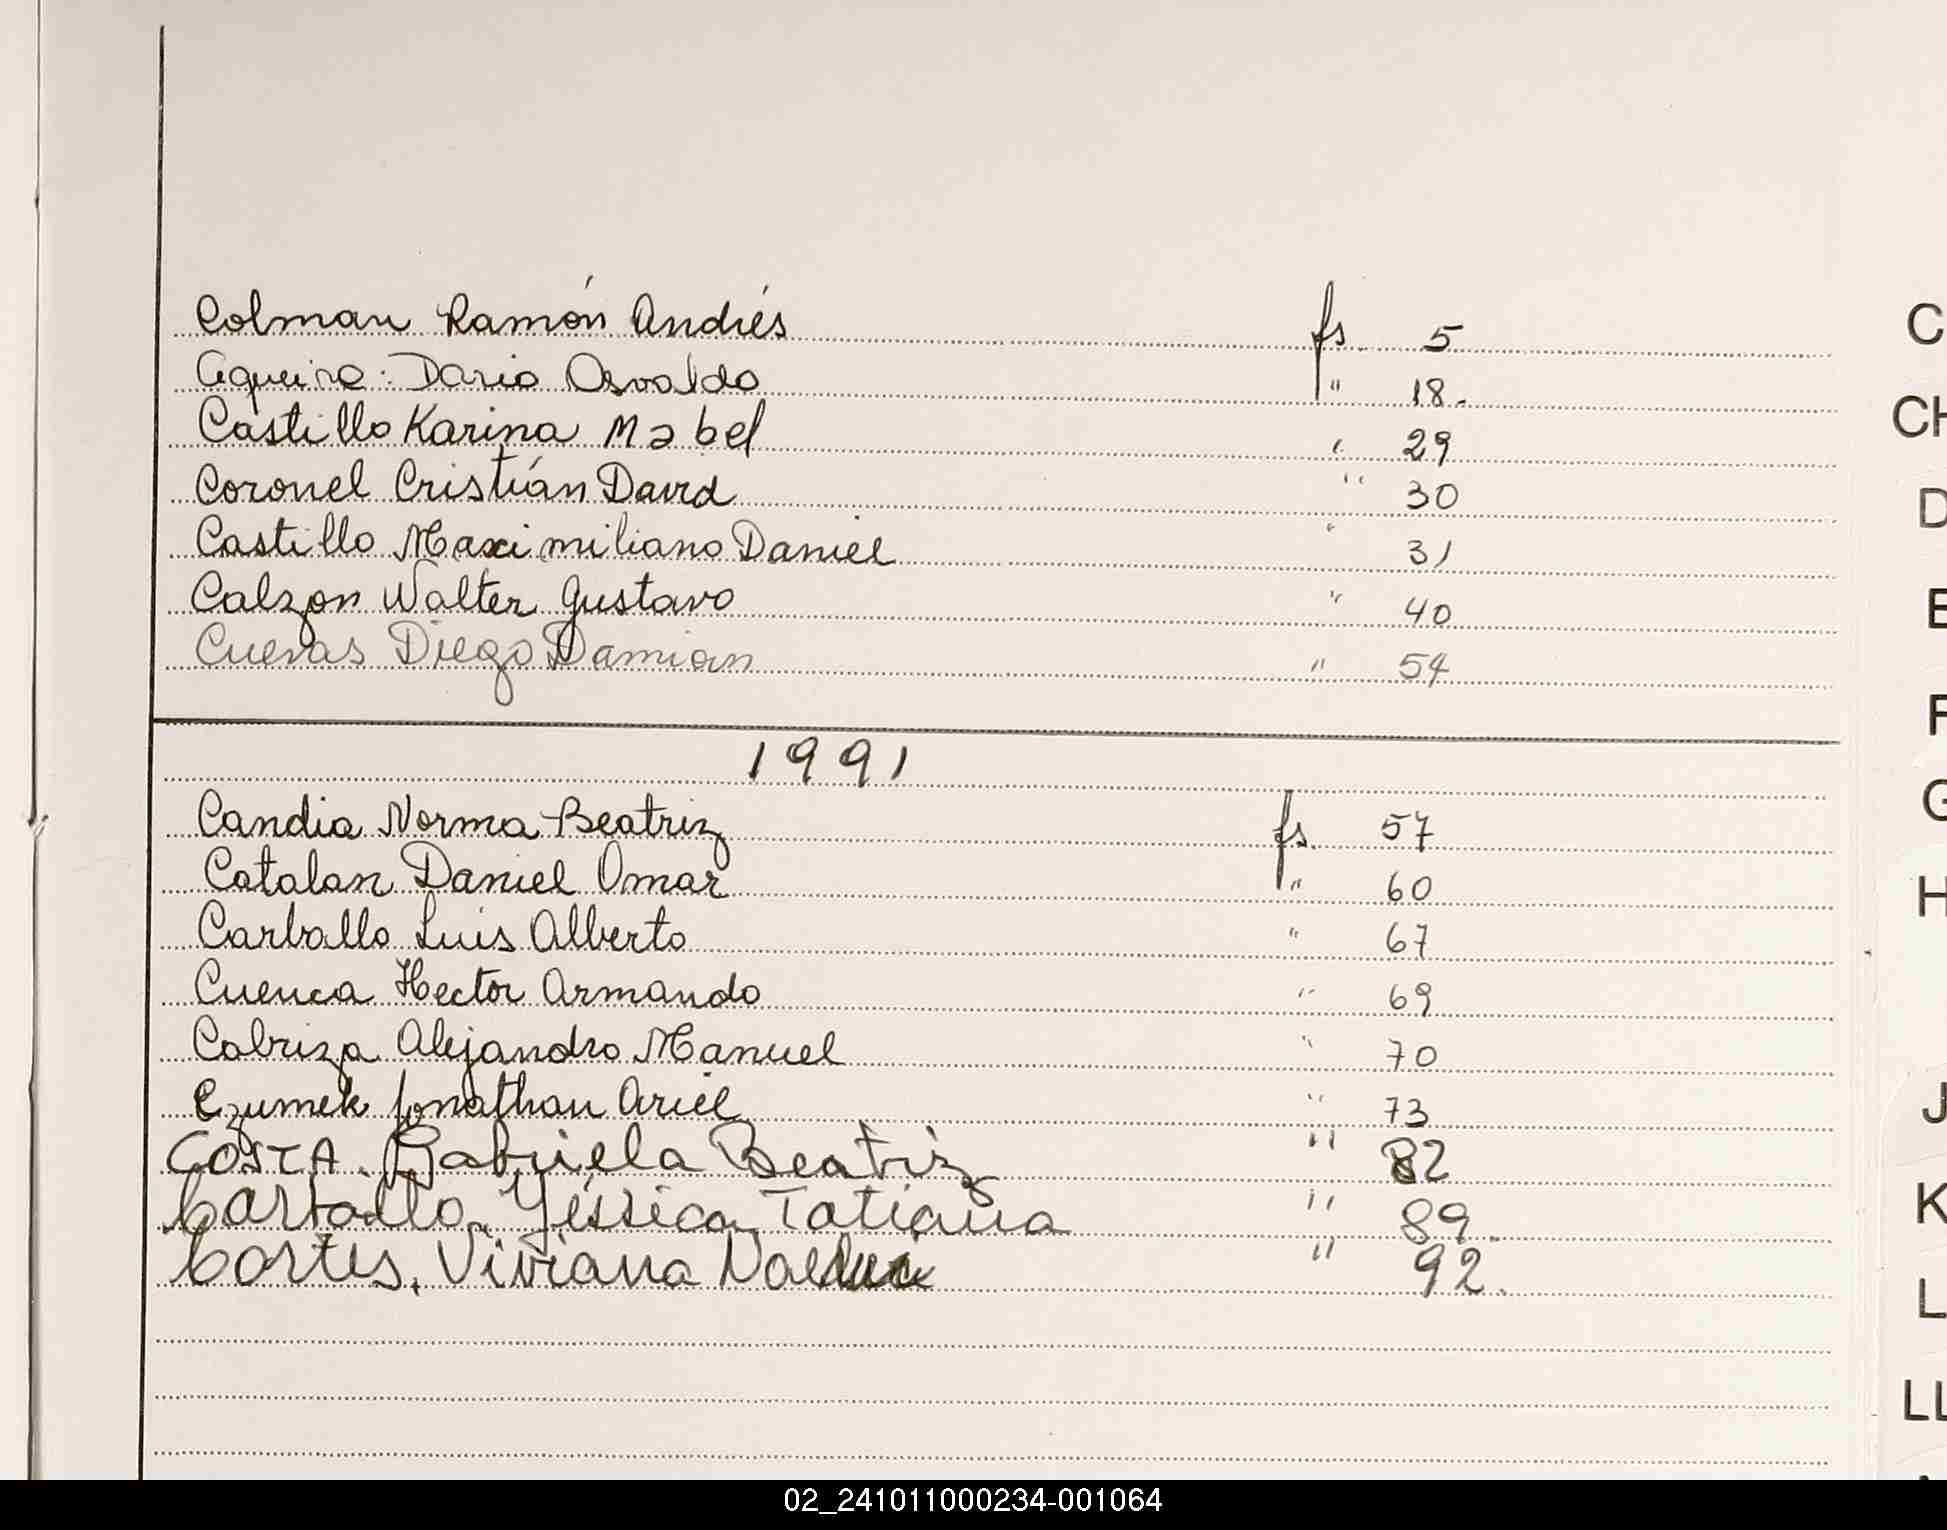 Colman Ramón Andrés fs. 5
Cqueira. Dario Osvaldo " 18.
Castillo Karina Mabel " 29
Coronel Cristián David " 30
Castillo Maximiliano Daniel " 31
Calzon Walter Gustavo " 40
Cuevas Diego Damian " 54
1991
Candia Norma Beatriz fs. 57
Catalan Daniel Omar " 60
Carballo Luis Alberto " 67
Cuenca Hector Armando " 69
Cabriza Alejandro Manuel " 70
Czumek Jonathan Ariel " 73
COSTA. Gabriela Beatriz " 82
Carballo, Yéssica Tatiana " 89.
Cortes, Viviana " 92.
C
CH
D
E
F
G
H
J
K
L
LL
02_241011000234-001064